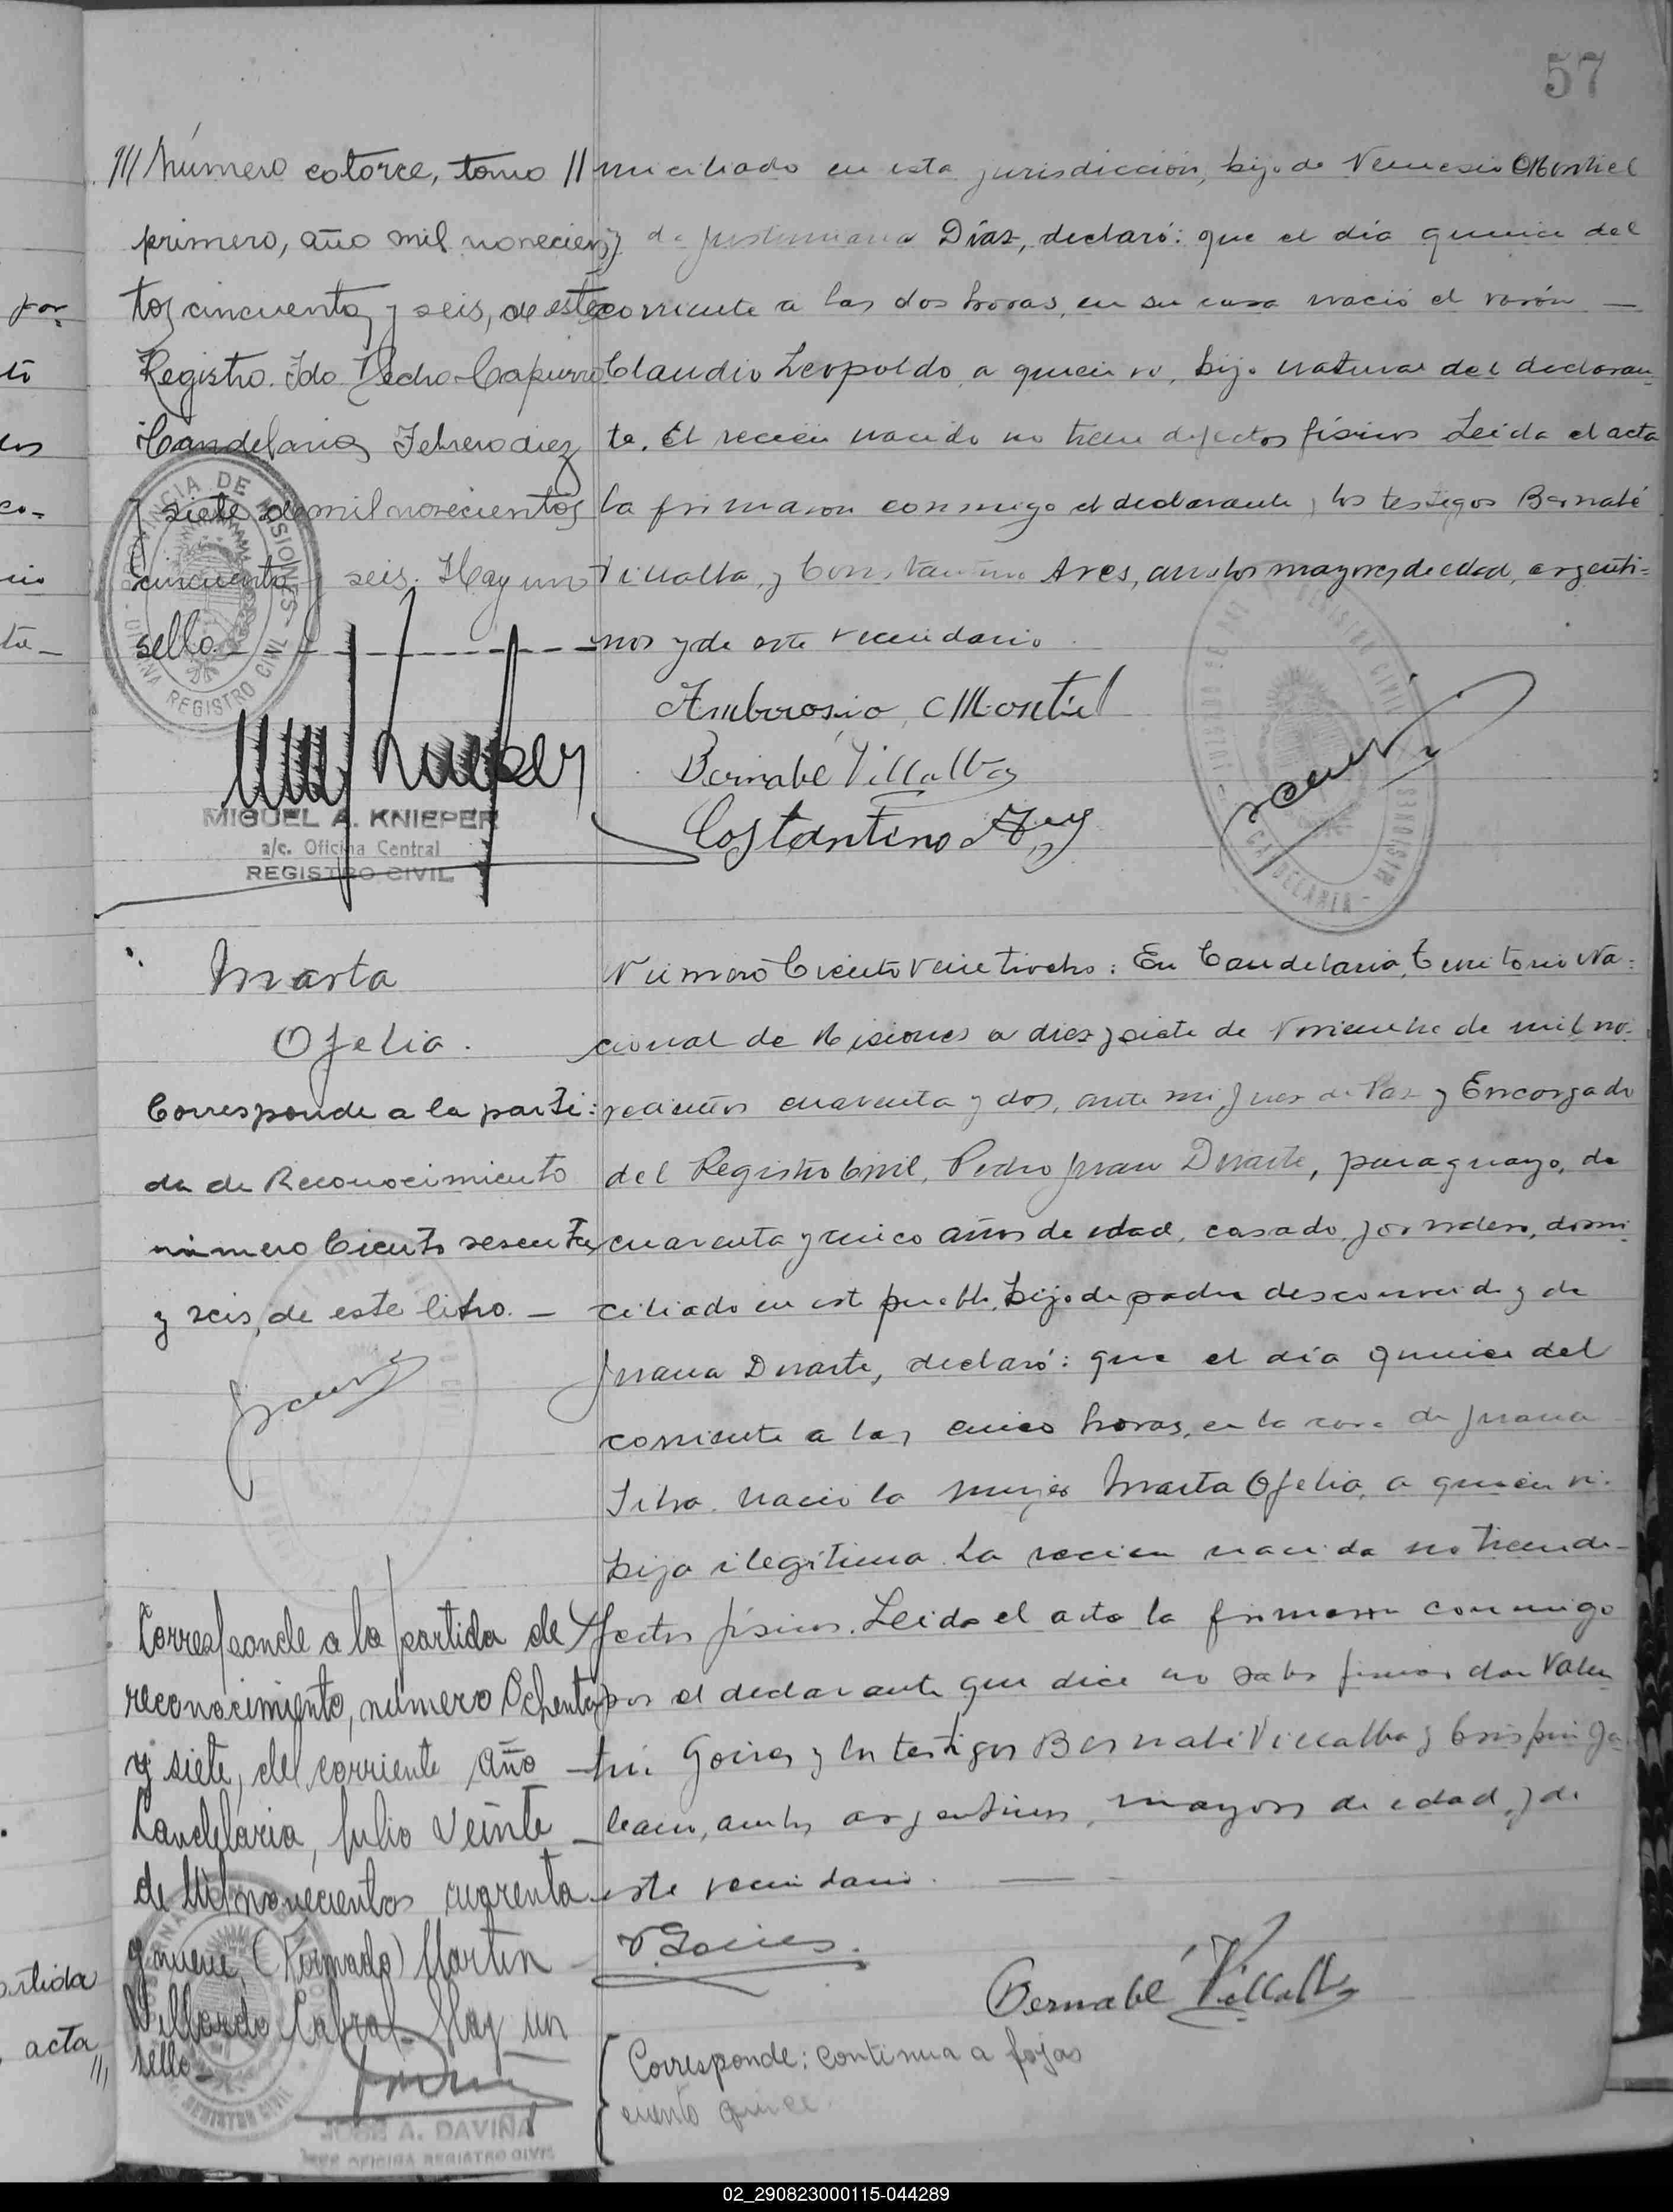 57
/// Número catorce, tomo
primero, año mil novecien
tos cincuenta y seis, de este
Registro. Fdo Pedro Capurro
Candelaria, Febrero diez
y siete de mil novecientos
cincuenta y seis. Hay un
sello.
PROVINCIA DE MISIONES
REGISTRO CIVIL
MIGUEL A. KNIEPER
a/c. Oficina Central
REGISTRO CIVIL
// miciliado en esta jurisdicción, hijo de Nemesio Montiel
y de Justiniana Díaz, declaró: que el día quince del
corriente a las dos horas, en su casa nació el varón —
Claudio Leopoldo, a quien vi, hijo natural del declaran
te. El recien nacido no tiene defectos físicos Leida el acta
la firmaron conmigo el declarante y los testigos Bernabé
Villalba, y Constantino Ares, ambos mayores de edad, argenti=
nos y de este vecindario
Ambrosio Montiel
Bernabé Villalba
Costantino
CANDELARIA
Marta
Ofelia.
Corresponde a la parti=
da de Reconocimiento
número Ciento sesenta
y seis, de este libro. —
Corresponde a la partida de
reconocimiento, numero Ochenta
y siete, del corriente año
Candelaria, Julio veinte
de Mil novecientos cuarenta
y nueve, (Firmado) Martin
Cabral. Hay un
sello.
REGISTRO CIVIL
JOSE A. DAVIÑA
JEFE OFICINA REGISTRO CIVIL
Número Ciento veintiocho: En Candelaria, Territorio Na=
cional de Misiones a diez y siete de Noviembre de mil no=
vecientos cuarenta y dos, ante mi Juez de Paz y Encargado
del Registro Civil, Pedro Juan Duarte, paraguayo, de
cuarenta y cinco años de edad, casado, jornalero, domi
ciliado en este pueblo, hijo de padre desconocido y de
Juana Duarte, declaró: que el día quince del
corriente a las cinco horas, en la casa de Juana
Silva nació la mujer Marta Ofelia, a quien vi
hija ilegítima. La recien nacida no tiene de-
fectos físicos. Leida el acta la firmaron conmigo
por el declarante que dice no saber firmar don Valen
tín Goires y los testigos Bernabé Villalba y Crispin Ga
leano, ambos argentinos, mayores de edad, y de
este vecindario. —
V Goires.
Bernabé Villalba
Corresponde: continua a fojas
ciento quince.
ortida
acta
02_290823000115-044289